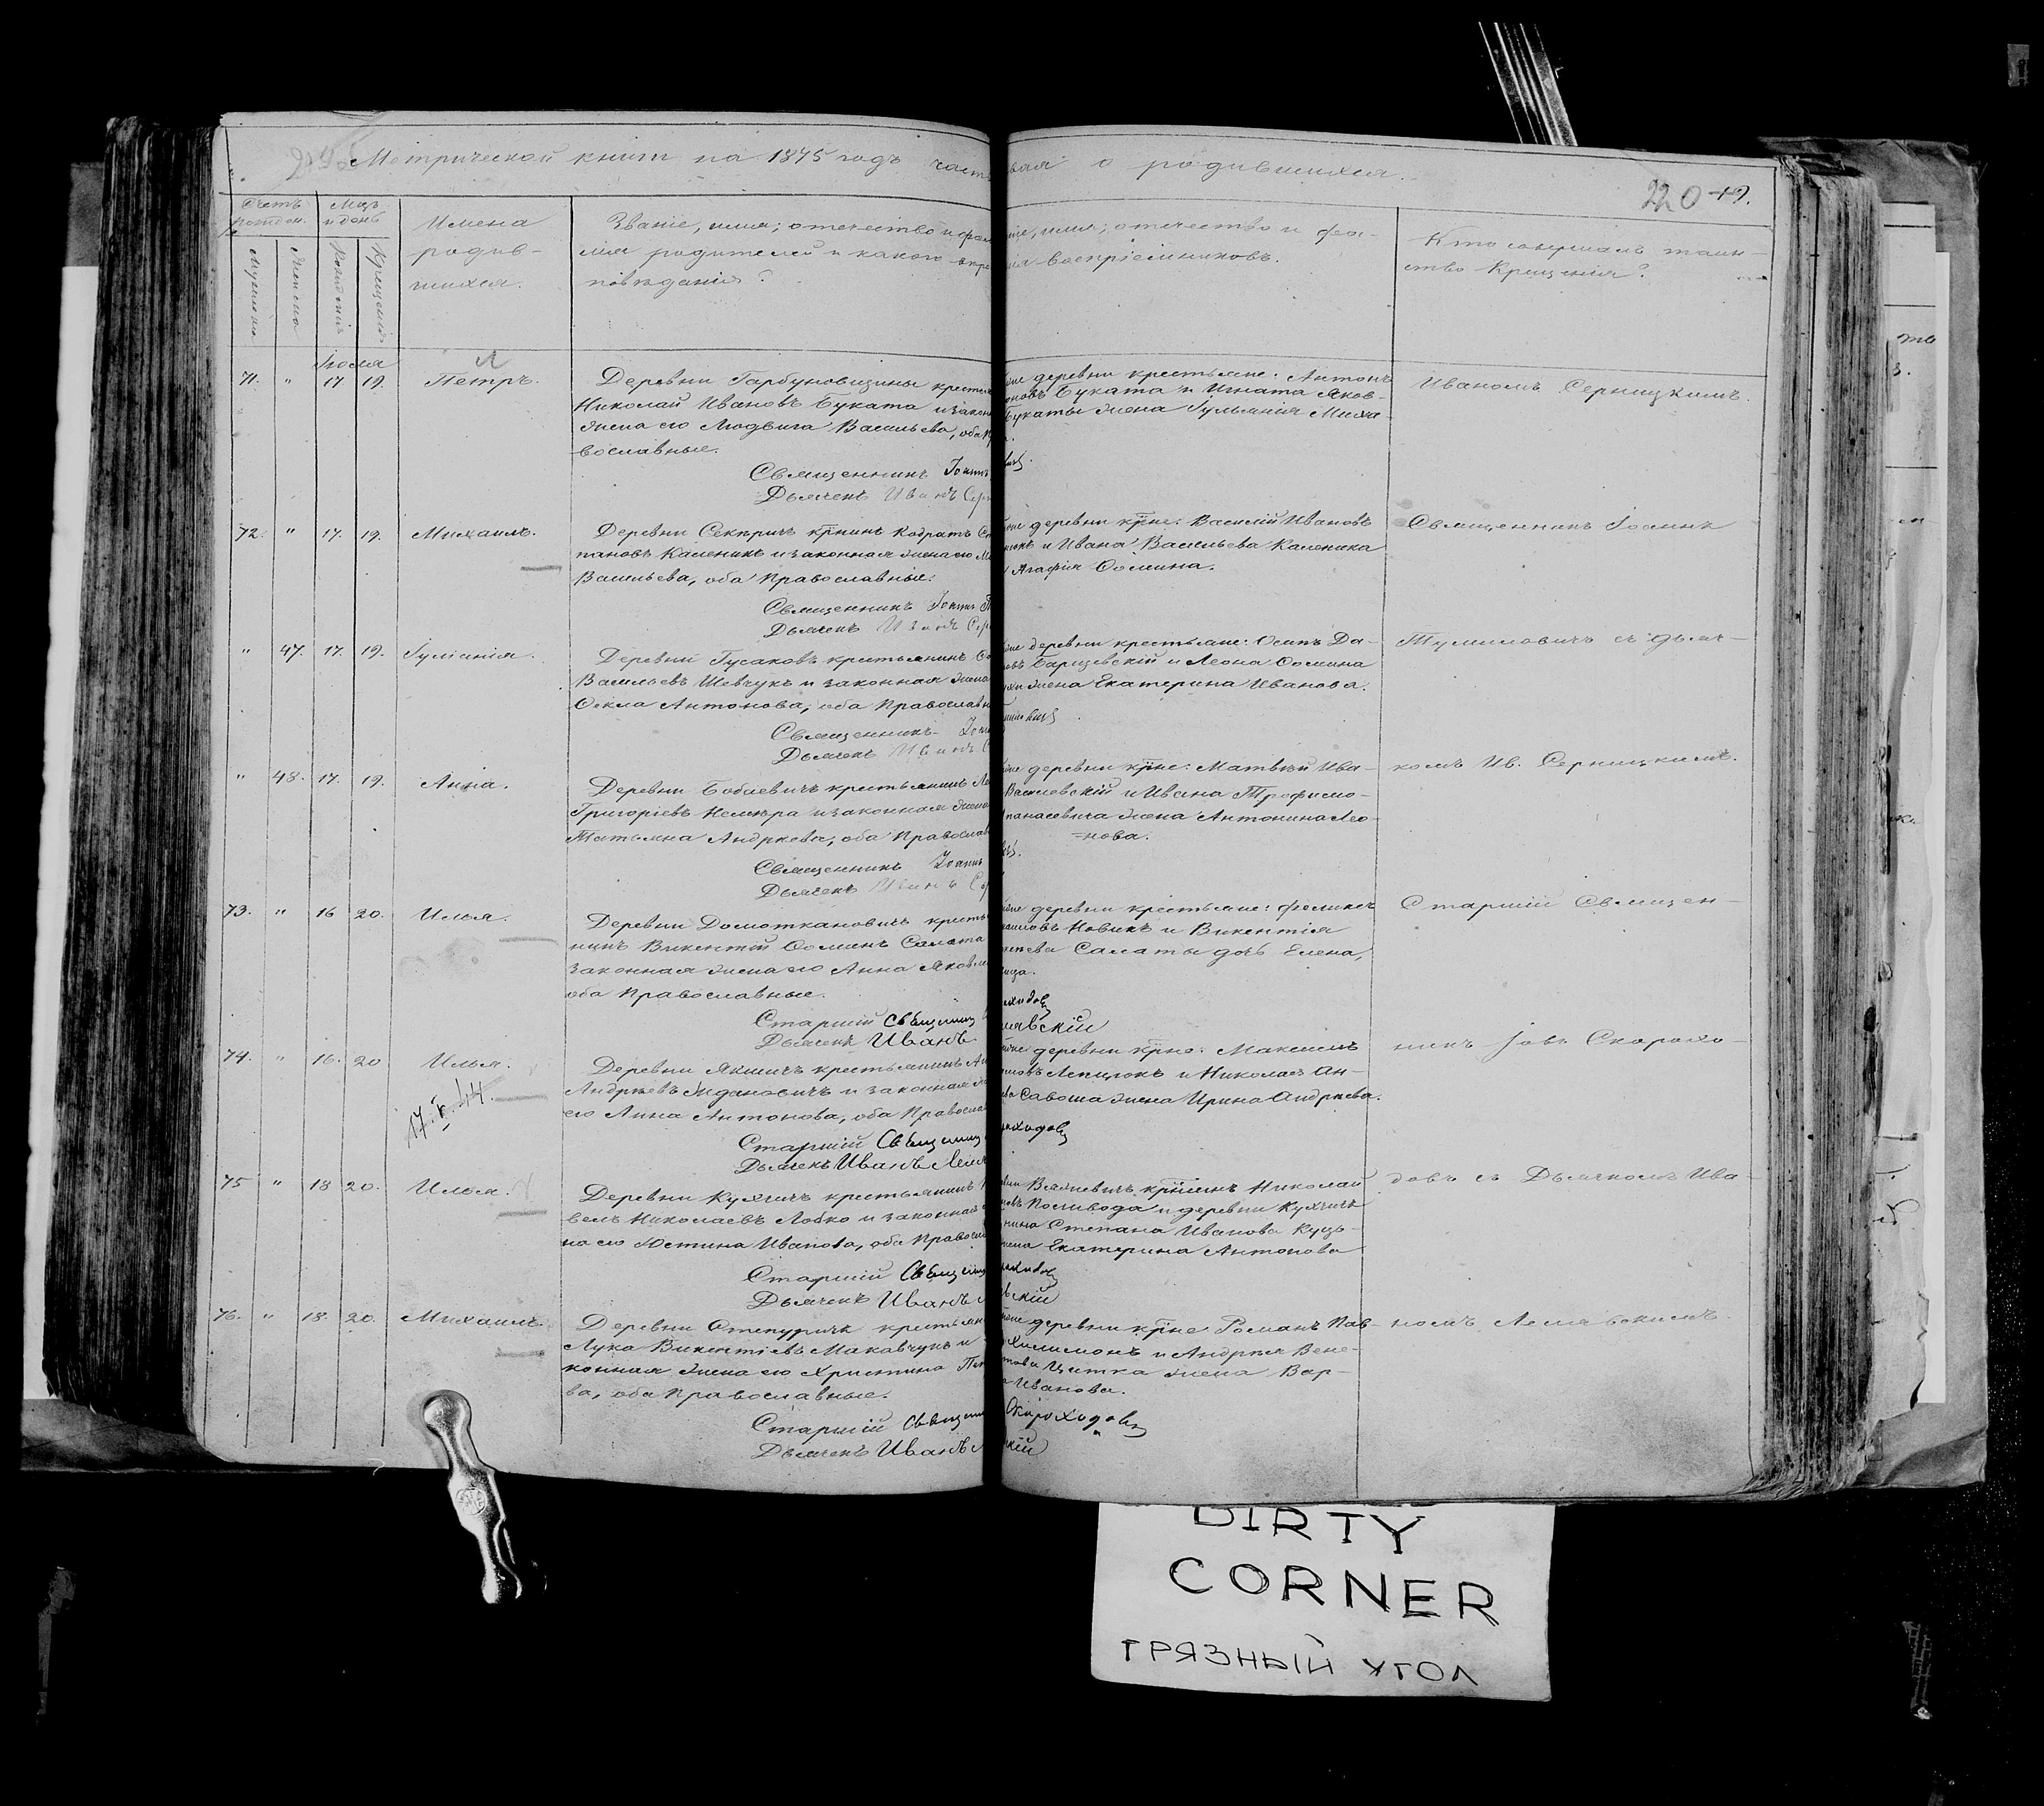 Метрической книги на 1875 годъ часть
вая о родившихся.
220
Счетъ родившихся.
Мцъ и день
Мужеска
Женска
Рожденія
Крещенія
Имена
родив-
шихся.
Званіе, имя, отечество и фам
лія родителей и какого веро
повѣданія?
отечество и фа-
воспріемниковъ.
Кто совершалъ таин-
ство Крещенія?
Іюля
71. " 17 19. Петръ.
Деревни Гарбуновщины крестья
Николай Ивановъ Буката и закон
жена его Людвига Васильева, оба П
вославные.
Священникъ Іоанн
Дьячекъ Иванъ Сер
деревни крестьяне: Антонъ
новъ Буката и Игната Яков-
Букаты жена Іульянія Миха-
Иваномъ Серницкимъ.
72. " 17. 19. Михаилъ.
Деревни Секеричъ кр̃нинъ Кодратъ Ст
пановъ Каленикъ и законная жена его М
Васильева, оба Православные.
Священникъ Іоаннъ
Дьячекъ Иванъ Сер
деревни кр̃не: Василій Ивановъ
и Ивана Васильева Каленика
Агафія Ѳомина.
Священникъ Іоаннъ
" 47. 17. 19. Іуліанія.
Деревни Гусаковъ крестьянинъ
Васильевъ Шевчукъ и законная жена
Ѳекла Антонова, оба Православн
Священникъ Іоан
Дьячекъ Иванъ С
деревни крестьяне: Осипъ Да-
Барщевскій и Леона Ѳомина
жена Екатерина Иванова.
Тумиловичъ съ дьяч-
" 48. 17. 19. Анна.
Деревни Бобаевичъ крестьянинъ Ле
Григорьевъ Немѣра и законная жена
Татьяна Андреева, оба Православ
Священникъ Іоанн
Дьячекъ Иванъ Сер
деревни кр̃не: Матвѣй Ива-
Василевскій и Ивана Трофимо-
панасевича жена Антонина Лео-
=нова.
комъ Ив. Серницкимъ.
73. " 16 20. Илья.
Деревни Домоткановичъ кресть
нинъ Викентій Ѳоминъ Салата
законная жена его Анна Яковле
оба Православные.
Старшій Священ
Дьячекъ Иванъ
деревни крестьяне: Феликсъ
Новикъ и Викентія
Салаты дочь Елена,
ица.
оходовъ
явскій
Старшій Священ-
74. " 16. 20 Илья.
17.V.44.
Деревни Якшичъ крестьянинъ Ан
Андреевъ Ждановичъ и законная ж
его Анна Антонова, оба Правосла
Старшій Священ
Дьячекъ Иванъ Лемя
деревни кр̃не: Максимъ
и Николая Ан-
Савоша жена Ирина Андреева.
роходовъ
никъ Іовъ Скорохо-
75 " 18 20. Илья.
Деревни Кухчичъ крестьянинъ П
велъ Николаевъ Лобко и законная
на его Юстина Иванова, оба Правосл
Старшій Священ
Дьячекъ Иванъ Л
кр̃нинъ Николай
Посивода и деревни Кухчичъ
Степана Иванова Куць-
жена Екатерина Антонова
оходовъ
вскій
довъ съ Дьячкомъ Ива-
76. " 18. 20. Михаилъ.
Деревни Отепуричъ крестьян
Лука Викентіевъ Макавчукъ и
конная жена его Христина Пет
ва, оба Православные.
Старшій Священ
Дьячекъ Иванъ Л
деревни кр̃не Романъ Пав-
Хилимонъ и Андрея Вене-
Цитка жена Вар-
Иванова.
Скороходовъ
скій
номъ Лемявскимъ.
DIRTY
CORNER
ГРЯЗНЫЙ УГОЛ